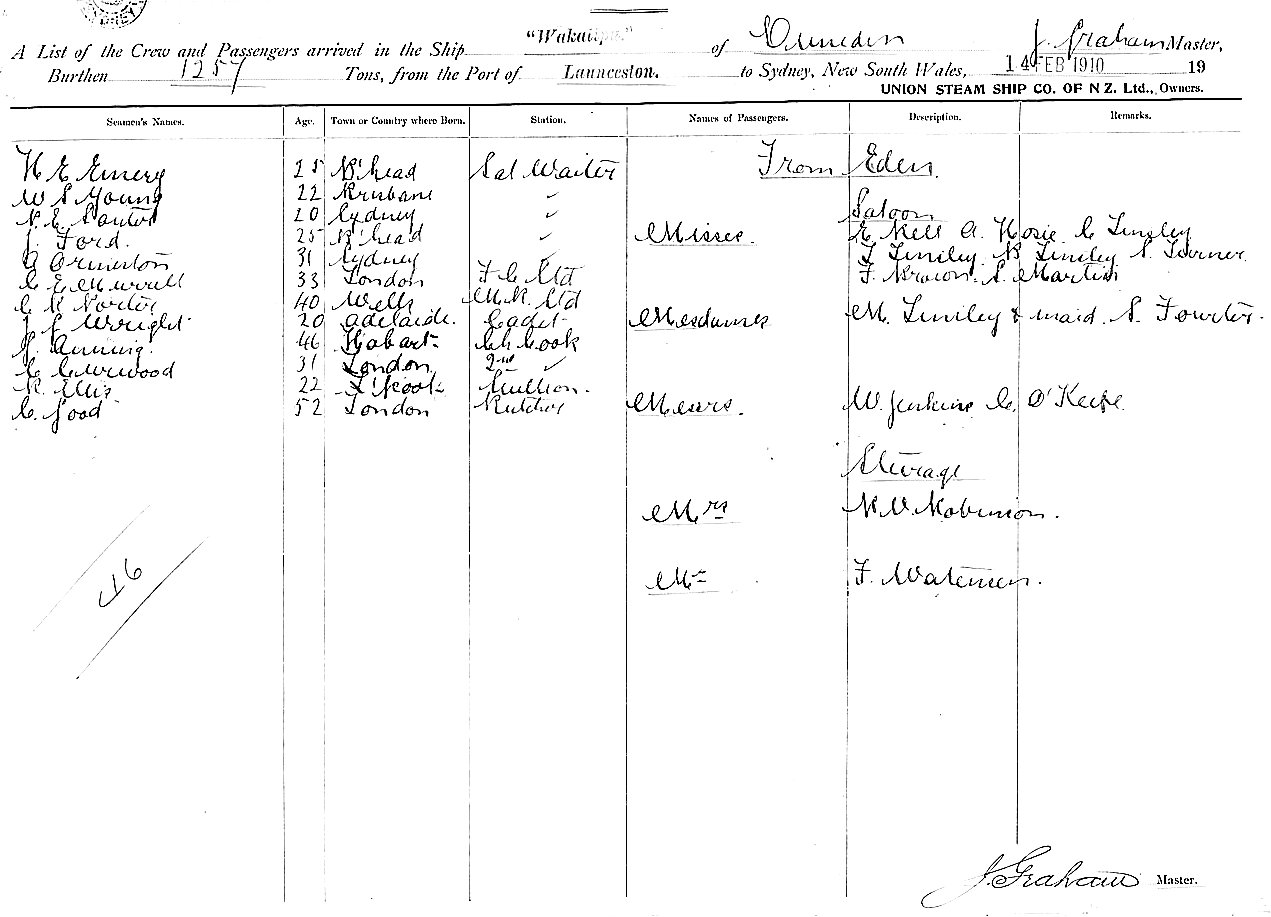 A List of the Crew and Passengers arrived in the Ship "Wakatipu" of Dunedin J. Graham Master,
Burthen 1257 Tons, from the Port of Launceston. to Sydney, New South Wales, 14 FEB 1910 19
UNION STEAM SHIP CO. OF N Z. Ltd., Owners.
Seamen's Names. Age. Town or Country where Born. Station. Names of Passengers. Description. Remarks.
From Eden
H E Emery 25 B'head Sal Waiter
W S Young 22 Brisbane ✓
20 Sydney ✓ Saloon
J. Ford. 25 B'head ✓ Misses. E Nell A. Hosie C Linsley
A Ormiston 31 Sydney ✓ L Linsley N Linsley S. Turner
C E Murrell 33 London F C Std F. Brown. S. Martin
C R Porter 40 Wells M. R. Std
J L Wright 20 Adelaide. Cadet Mesdames M. Linsley & maid. S. Fowler.
J. Anning. 46 Hobart Ch Cook
C Curwood 31 London 2nd ✓
R. Ellis 22 L'pool Scullion.
C. Good 52 London Butcher Messrs. W. Jenkins C. O'Keefe
Steerage
Mrs N. V. Robinson.
Mr F. Watersen.
46
J. Graham Master.